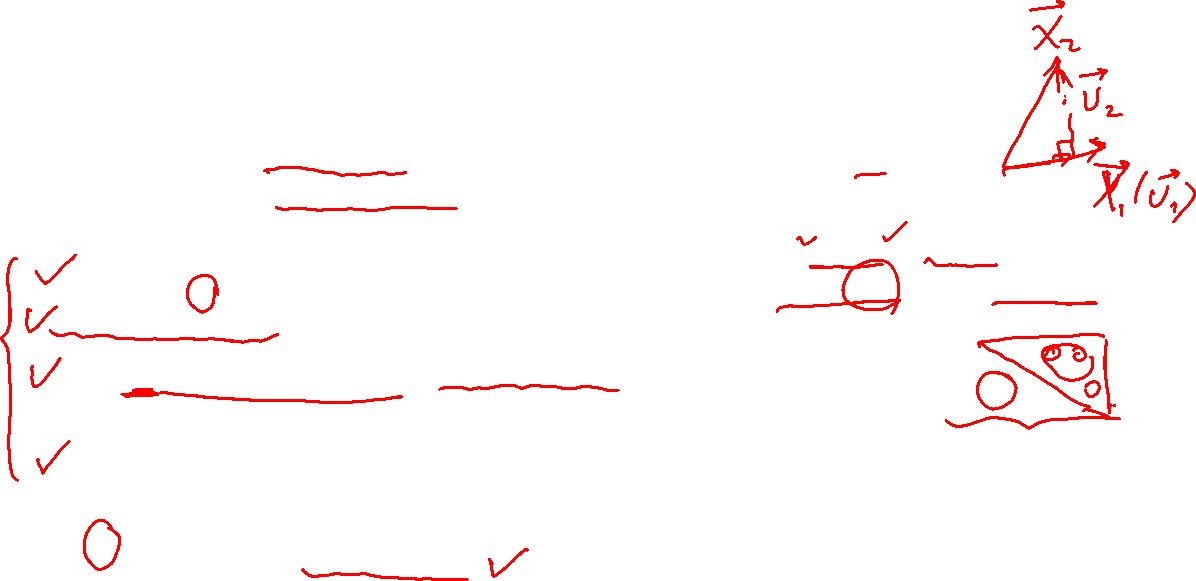 →x₂
→U₂
→x₁(→U₁)